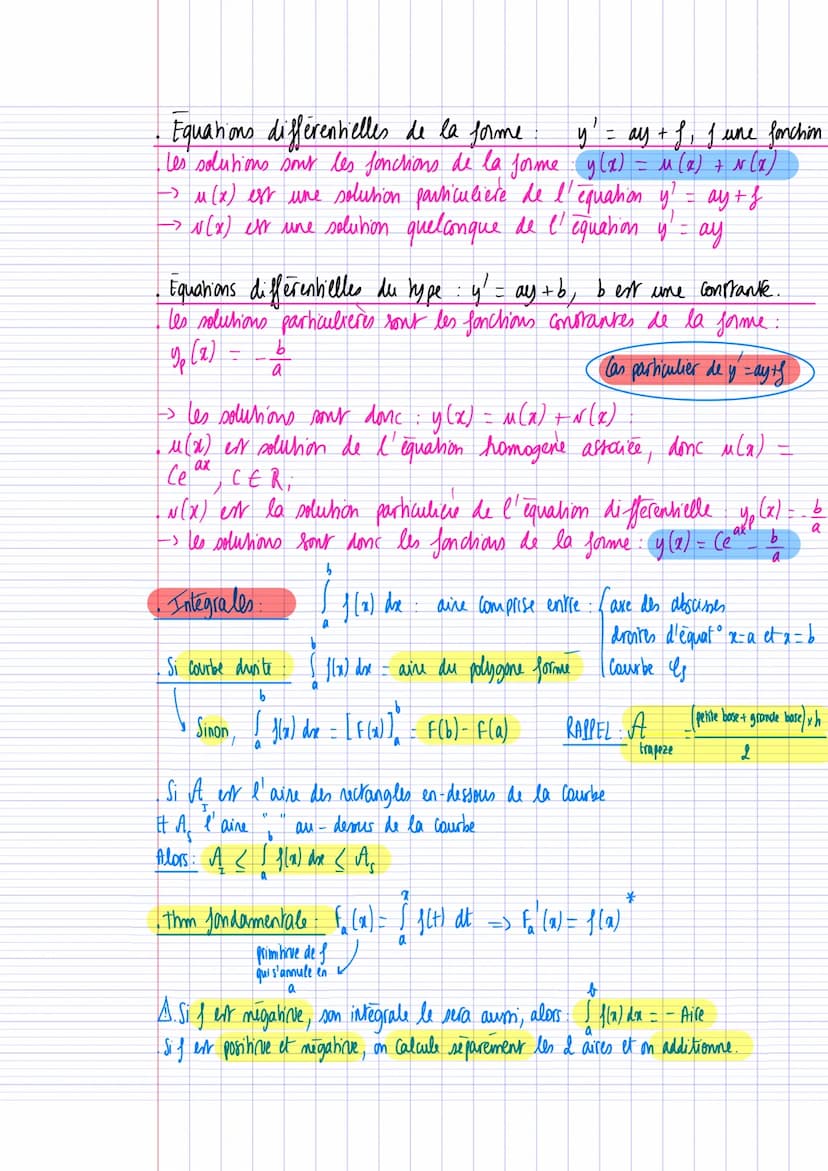 . Equations différentielles de la forme : y' = ay + f, f une fonction
. Les solutions sont les fonctions de la forme y(x) = u(x) + v(x)
→ u(x) est une solution particulière de l'équation y' = ay + f
→ v(x) est une solution quelconque de l'équation y' = ay
. Equations différentielles du type : y' = ay + b, b est une constante.
. Les solutions particulières sont les fonctions constantes de la forme :
yp(x) = - b/a
Cas particulier de y' = ay+f
→ Les solutions sont donc : y(x) = u(x) + v(x) :
. u(x) est solution de l'équation homogène associée, donc u(x) =
Ce^ax, C ∈ R ;
. v(x) est la solution particulière de l'équation différentielle : yp(x) = - b/a
→ Les solutions sont donc les fonctions de la forme : y(x) = Ce^ax - b/a
. Intégrales : ∫_a^b f(x) dx : aire comprise entre : { axe des abscisses
droites d'équat° x=a et x=b
. Si courbe droite : ∫_a^b f(x) dx = aire du polygone formé
courbe Cf
Sinon, ∫_a^b f(x) dx = [F(x)]_a^b = F(b) - F(a)
RAPPEL : A trapèze = (petite base + grande base) x h / 2
. Si A_I est l'aire des rectangles en-dessous de la courbe
Et A_S l'aire " " au-dessus de la courbe
Alors : A_I ≤ ∫_a^b f(x) dx ≤ A_S
. Thm fondamentale : F_a(x) = ∫_a^x f(t) dt => F_a'(x) = f(x) *
primitive de f
qui s'annule en
a
⚠. Si f est négative, son intégrale le sera aussi, alors : ∫_a^b f(x) dx = - Aire
. Si f est positive et négative, on calcule séparement les 2 aires et on additionne.